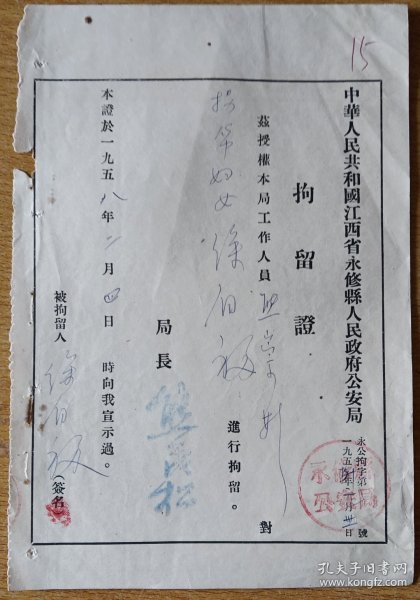 15
中華人民共和國江西省永修縣人民政府公安局
永公拘字第 號
一九五 年 月卅日
拘留證
茲授權本局工作人員 對
婦女徐伯 進行拘留。
局長
本證於一九五八年二月四日 時向我宣示過。
被拘留人 徐伯 (簽名)
永修縣
公安局
孔夫子旧书网